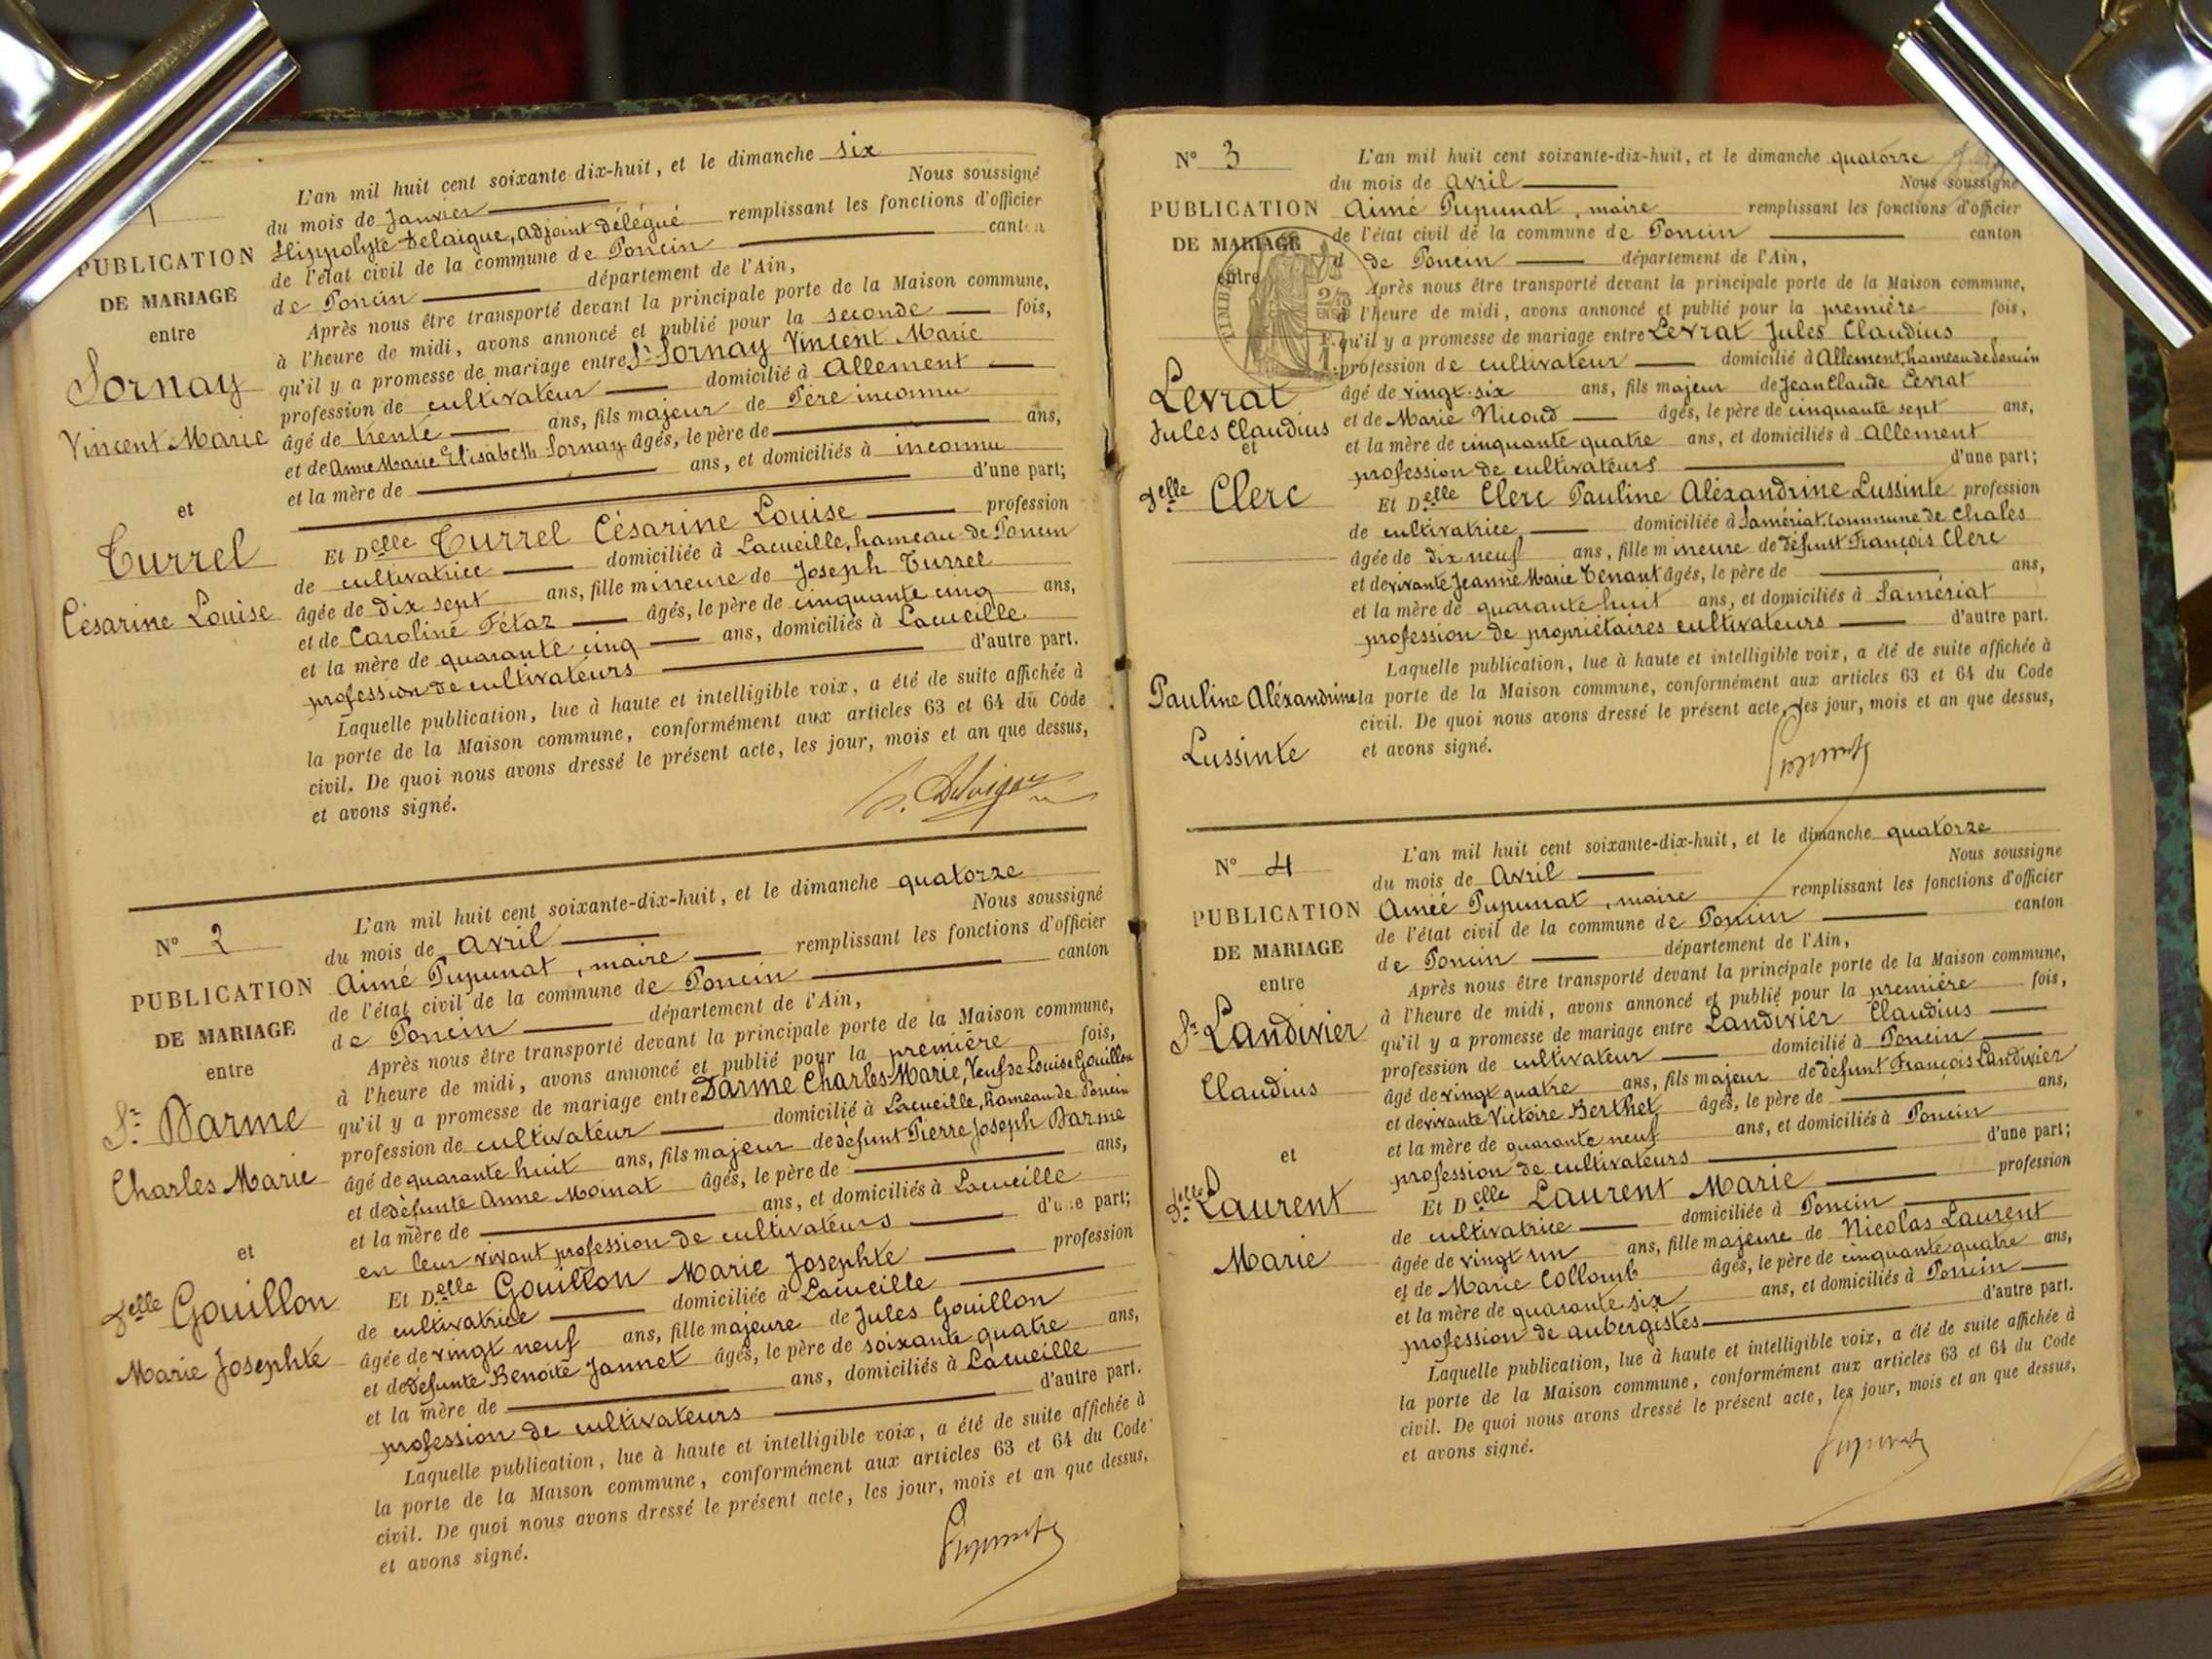 1
PUBLICATION
DE MARIAGE
entre
Sornay
Vincent Marie
et
Turrel
Césarine Louise
L'an mil huit cent soixante-dix-huit, et le dimanche six
du mois de Janvier Nous soussigné
Hippolyte Delaigue, adjoint délégué remplissant les fonctions d'officier
de l'état civil de la commune de Poncin canton
de Poncin département de l'Ain,
Après nous être transporté devant la principale porte de la Maison commune,
à l'heure de midi, avons annoncé et publié pour la seconde fois,
qu'il y a promesse de mariage entre Sr Sornay Vincent Marie
profession de cultivateur domicilié à Allement
âgé de trente ans, fils majeur de Père inconnu
et de Anne Marie Elisabeth Sornay âgés, le père de ans,
et la mère de ans, et domiciliés à inconnu
d'une part;
Et Delle Turrel Césarine Louise profession
de cultivatrice domiciliée à Lacueille, hameau de Poncin
âgée de dix sept ans, fille mineure de Joseph Turrel
et de Caroline Fétaz âgés, le père de cinquante cinq ans,
et la mère de quarante cinq ans, domiciliés à Lacueille
profession de cultivateurs d'autre part.
Laquelle publication, lue à haute et intelligible voix, a été de suite affichée à
la porte de la Maison commune, conformément aux articles 63 et 64 du Code
civil. De quoi nous avons dressé le présent acte, les jour, mois et an que dessus,
et avons signé.
N° 2
PUBLICATION
DE MARIAGE
entre
Sr Darme
Charles Marie
et
Delle Gouillon
Marie Josephte
L'an mil huit cent soixante-dix-huit, et le dimanche quatorze
du mois de avril Nous soussigné
Aimé Pupunat, maire remplissant les fonctions d'officier
de l'état civil de la commune de Poncin canton
de Poncin département de l'Ain,
Après nous être transporté devant la principale porte de la Maison commune,
à l'heure de midi, avons annoncé et publié pour la première fois,
qu'il y a promesse de mariage entre Darme Charles-Marie, Veuf de Louise Gouillon
profession de cultivateur domicilié à Lacueille, hameau de Poncin
âgé de quarante huit ans, fils majeur de défunt Pierre Joseph Darme
et de défunte Anne Moinat âgés, le père de ans,
et la mère de ans, et domiciliés à Lacueille
en leur vivant profession de cultivateurs d'une part;
Et Delle Gouillon Marie Josephte profession
de cultivatrice domiciliée à Lacueille
âgée de vingt neuf ans, fille majeure de Jules Gouillon
et de défunte Benoite Jannet âgés, le père de soixante quatre ans,
et la mère de ans, domiciliés à Lacueille
profession de cultivateurs d'autre part.
Laquelle publication, lue à haute et intelligible voix, a été de suite affichée à
la porte de la Maison commune, conformément aux articles 63 et 64 du Code
civil. De quoi nous avons dressé le présent acte, les jour, mois et an que dessus,
et avons signé.
Pupunat
N° 3
PUBLICATION
DE MARIAGE
entre
TIMBRE
Levrat
Jules Claudius
et
Delle Clerc
Pauline Aléxandrine
Lussinte
L'an mil huit cent soixante-dix-huit, et le dimanche quatorze
du mois de avril Nous soussigné
Aimé Pupunat, maire remplissant les fonctions d'officier
de l'état civil de la commune de Poncin canton
de Poncin département de l'Ain,
Après nous être transporté devant la principale porte de la Maison commune,
à l'heure de midi, avons annoncé et publié pour la première fois,
qu'il y a promesse de mariage entre Levrat Jules Claudius
profession de cultivateur domicilié à Allement, hameau de Poncin
âgé de vingt-six ans, fils majeur de Jean Claude Levrat
et de Marie Nicoud âgés, le père de cinquante sept ans,
et la mère de cinquante quatre ans, et domiciliés à Allement
profession de cultivateurs d'une part;
Et Delle Clerc Pauline Aléxandrine Lussinte profession
de cultivatrice domiciliée à Samériat, commune de Chales
âgée de dix neuf ans, fille mineure de défunt François Clerc
et de vivante Jeanne Marie Tenant âgés, le père de ans,
et la mère de quarante huit ans, et domiciliés à Samériat
profession de propriétaires cultivateurs d'autre part.
Laquelle publication, lue à haute et intelligible voix, a été de suite affichée à
la porte de la Maison commune, conformément aux articles 63 et 64 du Code
civil. De quoi nous avons dressé le présent acte, les jour, mois et an que dessus,
et avons signé.
Pupunat
N° 4
PUBLICATION
DE MARIAGE
entre
Sr Landivier
Claudius
et
Delle Laurent
Marie
L'an mil huit cent soixante-dix-huit, et le dimanche quatorze
du mois de Avril Nous soussigné
Aimé Pupunat, maire remplissant les fonctions d'officier
de l'état civil de la commune de Poncin canton
de Poncin département de l'Ain,
Après nous être transporté devant la principale porte de la Maison commune,
à l'heure de midi, avons annoncé et publié pour la première fois,
qu'il y a promesse de mariage entre Landivier Claudius
profession de cultivateur domicilié à Poncin
âgé de vingt quatre ans, fils majeur de défunt François Landivier
et de vivante Victoire Berthet âgés, le père de ans,
et la mère de quarante neuf ans, et domiciliés à Poncin
profession de cultivateurs d'une part;
Et Delle Laurent Marie profession
de cultivatrice domiciliée à Poncin
âgée de vingt un ans, fille majeure de Nicolas Laurent
et de Marie Collomb âgés, le père de cinquante quatre ans,
et la mère de quarante six ans, et domiciliés à Poncin
profession de aubergistes d'autre part.
Laquelle publication, lue à haute et intelligible voix, a été de suite affichée à
la porte de la Maison commune, conformément aux articles 63 et 64 du Code
civil. De quoi nous avons dressé le présent acte, les jour, mois et an que dessus,
et avons signé.
Pupunat